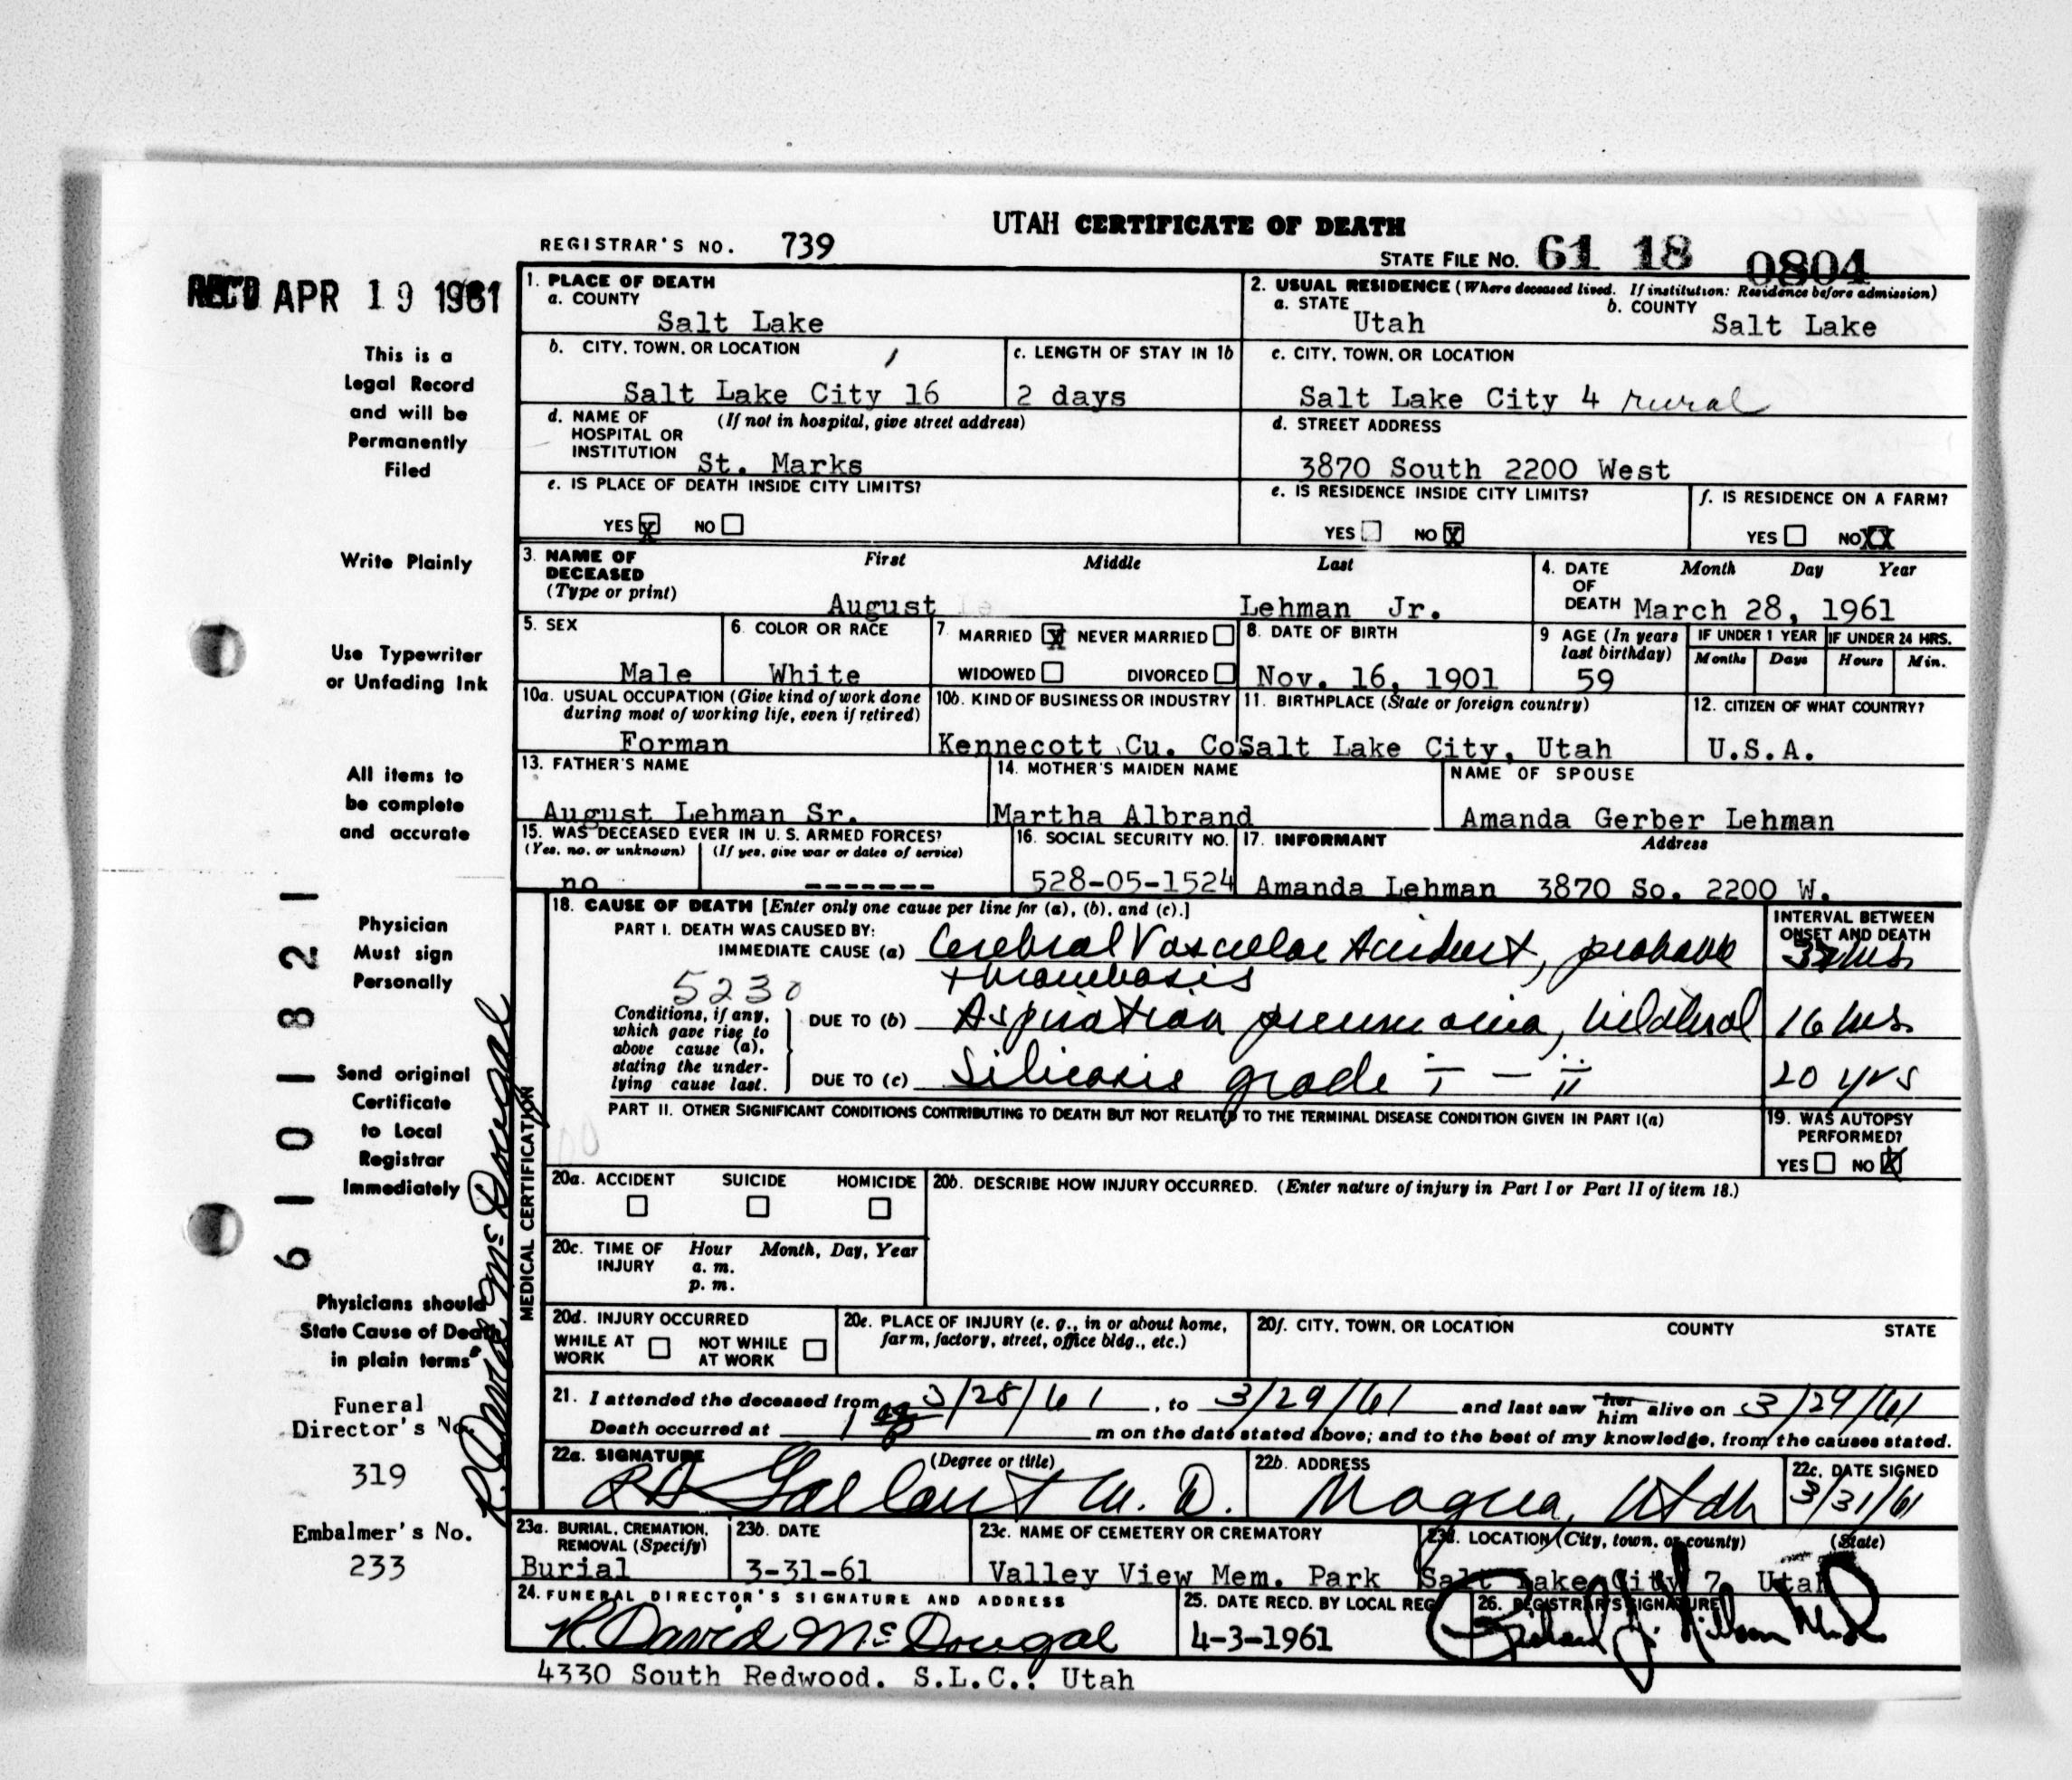 UTAH CERTIFICATE OF DEATH
REGISTRAR'S NO. 739
STATE FILE NO. 61 18 0804
REC'D APR 19 1961
This is a
Legal Record
and will be
Permanently
Filed
Write Plainly
Use Typewriter
or Unfading Ink
All items to
be complete
and accurate
Physician
Must sign
Personally
Send original
Certificate
to Local
Registrar
Immediately
Physicians should
State Cause of Death
in plain terms
Funeral
Director's No.
319
Embalmer's No.
233
6101821
R. David McDougal
1. PLACE OF DEATH
a. COUNTY
Salt Lake
2. USUAL RESIDENCE (Where deceased lived. If institution: Residence before admission)
a. STATE Utah
b. COUNTY Salt Lake
b. CITY, TOWN, OR LOCATION
Salt Lake City 16
c. LENGTH OF STAY IN 1b
2 days
c. CITY, TOWN, OR LOCATION
Salt Lake City 4 rural
d. NAME OF (If not in hospital, give street address)
HOSPITAL OR
INSTITUTION St. Marks
d. STREET ADDRESS
3870 South 2200 West
e. IS PLACE OF DEATH INSIDE CITY LIMITS?
YES X NO
e. IS RESIDENCE INSIDE CITY LIMITS?
YES NO X
f. IS RESIDENCE ON A FARM?
YES NO XX
3. NAME OF DECEASED (Type or print)
First Middle Last
August Lehman Jr.
4. DATE OF DEATH
Month Day Year
March 28, 1961
5. SEX
Male
6. COLOR OR RACE
White
7. MARRIED X NEVER MARRIED
WIDOWED DIVORCED
8. DATE OF BIRTH
Nov. 16, 1901
9 AGE (In years last birthday)
59
IF UNDER 1 YEAR
Months Days
IF UNDER 24 HRS.
Hours Min.
10a. USUAL OCCUPATION (Give kind of work done
during most of working life, even if retired)
Forman
10b. KIND OF BUSINESS OR INDUSTRY
Kennecott Cu. Co
11. BIRTHPLACE (State or foreign country)
Salt Lake City, Utah
12. CITIZEN OF WHAT COUNTRY?
U.S.A.
13. FATHER'S NAME
August Lehman Sr.
14. MOTHER'S MAIDEN NAME
Martha Albrand
NAME OF SPOUSE
Amanda Gerber Lehman
15. WAS DECEASED EVER IN U. S. ARMED FORCES?
(Yes, no, or unknown) (If yes, give war or dates of service)
no -------
16. SOCIAL SECURITY NO.
528-05-1524
17. INFORMANT Address
Amanda Lehman 3870 So. 2200 W.
MEDICAL CERTIFICATION
18. CAUSE OF DEATH [Enter only one cause per line for (a), (b), and (c).]
INTERVAL BETWEEN
ONSET AND DEATH
PART I. DEATH WAS CAUSED BY:
IMMEDIATE CAUSE (a) Cerebral Vascular Accident, probable hrs.
thrombosis
5230
Conditions, if any,
which gave rise to
above cause (a),
stating the under-
lying cause last.
DUE TO (b) Aspiration pneumonia, bilateral 16 hrs.
DUE TO (c) Silicosis grade I - II 20 yrs
PART II. OTHER SIGNIFICANT CONDITIONS CONTRIBUTING TO DEATH BUT NOT RELATED TO THE TERMINAL DISEASE CONDITION GIVEN IN PART I(a)
19. WAS AUTOPSY
PERFORMED?
YES NO X
20a. ACCIDENT SUICIDE HOMICIDE
20b. DESCRIBE HOW INJURY OCCURRED. (Enter nature of injury in Part I or Part II of item 18.)
20c. TIME OF INJURY
Hour Month, Day, Year
a. m.
p. m.
20d. INJURY OCCURRED
WHILE AT WORK NOT WHILE AT WORK
20e. PLACE OF INJURY (e. g., in or about home,
farm, factory, street, office bldg., etc.)
20f. CITY, TOWN, OR LOCATION COUNTY STATE
21. I attended the deceased from 3/28/61, to 3/29/61 and last saw her him alive on 3/29/61
Death occurred at 1 p m on the date stated above; and to the best of my knowledge, from the causes stated.
22a. SIGNATURE (Degree or title)
Gallant M. D.
22b. ADDRESS
Magna, Utah
22c. DATE SIGNED
3/31/61
23a. BURIAL, CREMATION,
REMOVAL (Specify)
Burial
23b. DATE
3-31-61
23c. NAME OF CEMETERY OR CREMATORY
Valley View Mem. Park
23d. LOCATION (City, town, or county) (State)
Salt Lake City 7 Utah
24. FUNERAL DIRECTOR'S SIGNATURE AND ADDRESS
R. David McDougal
25. DATE RECD. BY LOCAL REG
4-3-1961
26. REGISTRAR'S SIGNATURE
4330 South Redwood. S.L.C.. Utah